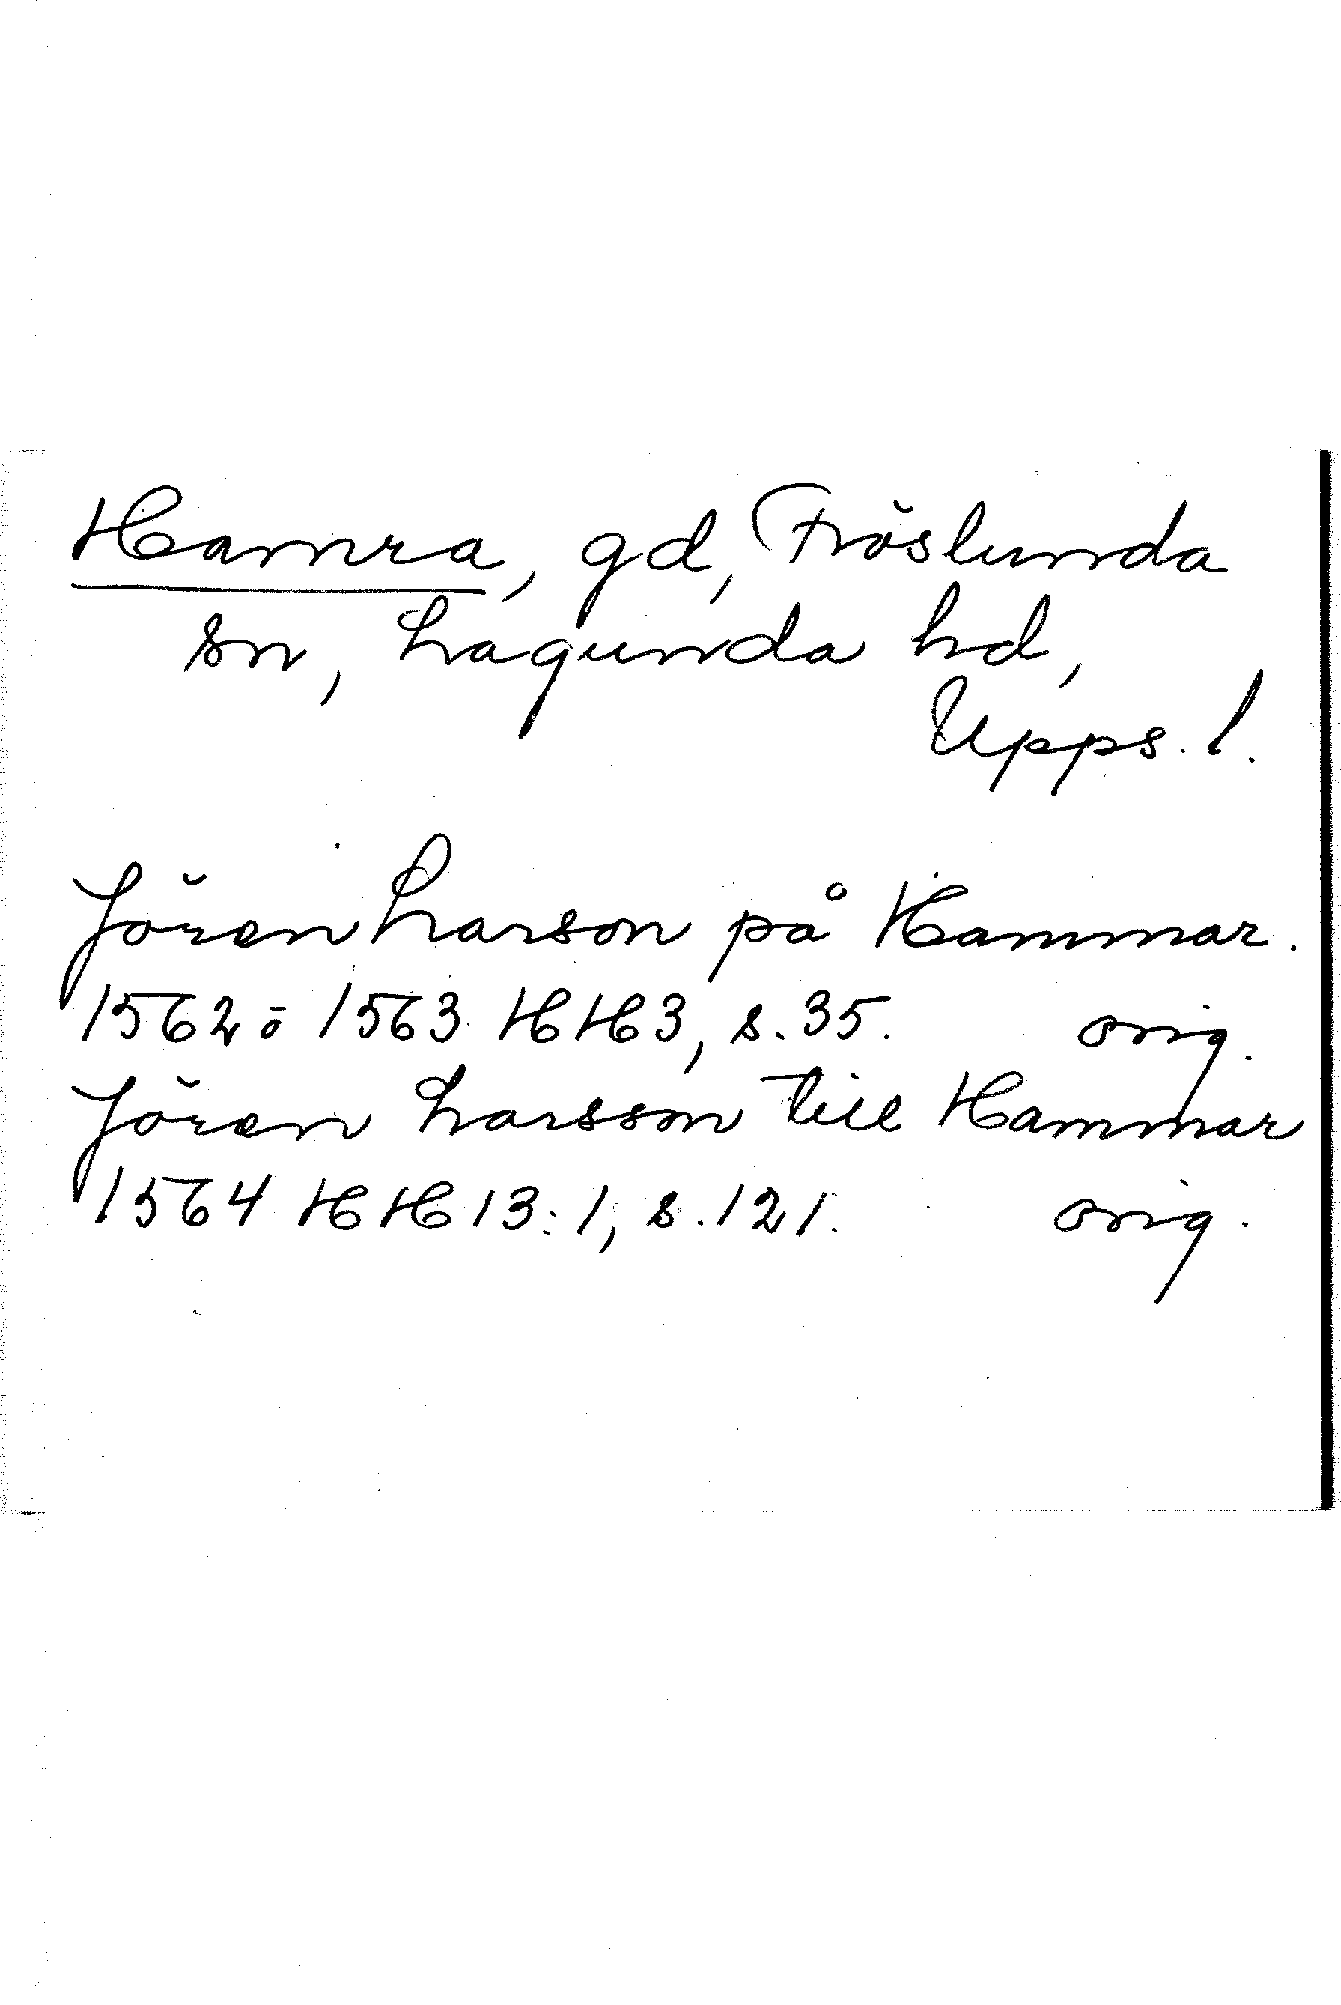 Hamra, gd, Fröslunda
sn, Lagunda hd,
Upps. l.
Jören Larson på Hammar.
1562 ö 1563 HH3, s. 35. orig.
Jören Larsson till Hammar
1564 HH 13:1, s. 121. orig.